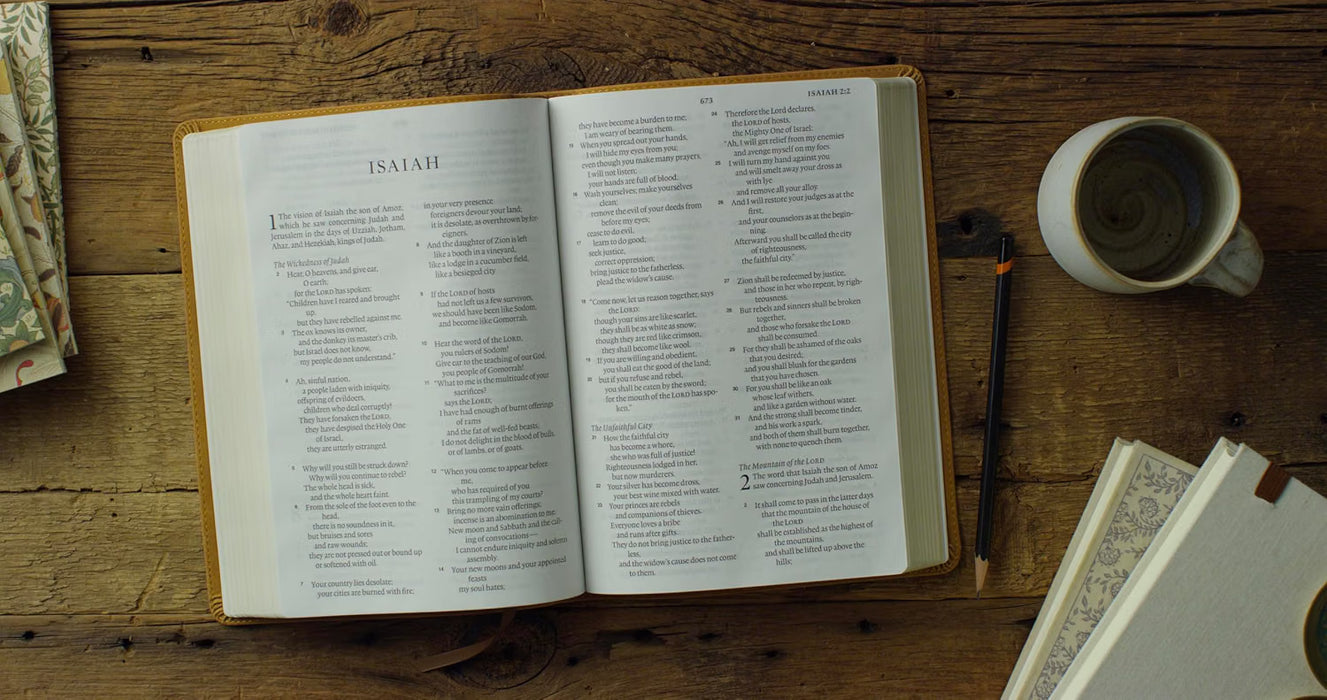 ISAIAH
1 The vision of Isaiah the son of Amoz,
which he saw concerning Judah and
Jerusalem in the days of Uzziah, Jotham,
Ahaz, and Hezekiah, kings of Judah.
The Wickedness of Judah
2 Hear, O heavens, and give ear,
O earth;
for the LORD has spoken:
"Children have I reared and brought
up,
but they have rebelled against me.
3 The ox knows its owner,
and the donkey its master's crib,
but Israel does not know,
my people do not understand."
4 Ah, sinful nation,
a people laden with iniquity,
offspring of evildoers,
children who deal corruptly!
They have forsaken the LORD,
they have despised the Holy One
of Israel,
they are utterly estranged.
5 Why will you still be struck down?
Why will you continue to rebel?
The whole head is sick,
and the whole heart faint.
6 From the sole of the foot even to the
head,
there is no soundness in it,
but bruises and sores
and raw wounds;
they are not pressed out or bound up
or softened with oil.
7 Your country lies desolate;
your cities are burned with fire;
in your very presence
foreigners devour your land;
it is desolate, as overthrown by for-
eigners.
8 And the daughter of Zion is left
like a booth in a vineyard,
like a lodge in a cucumber field,
like a besieged city.
9 If the LORD of hosts
had not left us a few survivors,
we should have been like Sodom,
and become like Gomorrah.
10 Hear the word of the LORD,
you rulers of Sodom!
Give ear to the teaching of our God,
you people of Gomorrah!
11 "What to me is the multitude of your
sacrifices?
says the LORD;
I have had enough of burnt offerings
of rams
and the fat of well-fed beasts;
I do not delight in the blood of bulls,
or of lambs, or of goats.
12 "When you come to appear before
me,
who has required of you
this trampling of my courts?
13 Bring no more vain offerings;
incense is an abomination to me.
New moon and Sabbath and the call-
ing of convocations—
I cannot endure iniquity and solemn
assembly.
14 Your new moons and your appointed
feasts
my soul hates;
673
ISAIAH 2:2
they have become a burden to me;
I am weary of bearing them.
15 When you spread out your hands,
I will hide my eyes from you;
even though you make many prayers,
I will not listen;
your hands are full of blood.
16 Wash yourselves; make yourselves
clean;
remove the evil of your deeds from
before my eyes;
cease to do evil,
17 learn to do good;
seek justice,
correct oppression;
bring justice to the fatherless,
plead the widow's cause.
18 "Come now, let us reason together, says
the LORD:
though your sins are like scarlet,
they shall be as white as snow;
though they are red like crimson,
they shall become like wool.
19 If you are willing and obedient,
you shall eat the good of the land;
20 but if you refuse and rebel,
you shall be eaten by the sword;
for the mouth of the LORD has spo-
ken."
The Unfaithful City
21 How the faithful city
has become a whore,
she who was full of justice!
Righteousness lodged in her,
but now murderers.
22 Your silver has become dross,
your best wine mixed with water.
23 Your princes are rebels
and companions of thieves.
Everyone loves a bribe
and runs after gifts.
They do not bring justice to the father-
less,
and the widow's cause does not come
to them.
24 Therefore the Lord declares,
the LORD of hosts,
the Mighty One of Israel:
"Ah, I will get relief from my enemies
and avenge myself on my foes.
25 I will turn my hand against you
and will smelt away your dross as
with lye
and remove all your alloy.
26 And I will restore your judges as at the
first,
and your counselors as at the begin-
ning.
Afterward you shall be called the city
of righteousness,
the faithful city."
27 Zion shall be redeemed by justice,
and those in her who repent, by righ-
teousness.
28 But rebels and sinners shall be broken
together,
and those who forsake the LORD
shall be consumed.
29 For they shall be ashamed of the oaks
that you desired;
and you shall blush for the gardens
that you have chosen.
30 For you shall be like an oak
whose leaf withers,
and like a garden without water.
31 And the strong shall become tinder,
and his work a spark,
and both of them shall burn together,
with none to quench them.
The Mountain of the LORD
2 The word that Isaiah the son of Amoz
saw concerning Judah and Jerusalem.
2 It shall come to pass in the latter days
that the mountain of the house of
the LORD
shall be established as the highest of
the mountains,
and shall be lifted up above the
hills;